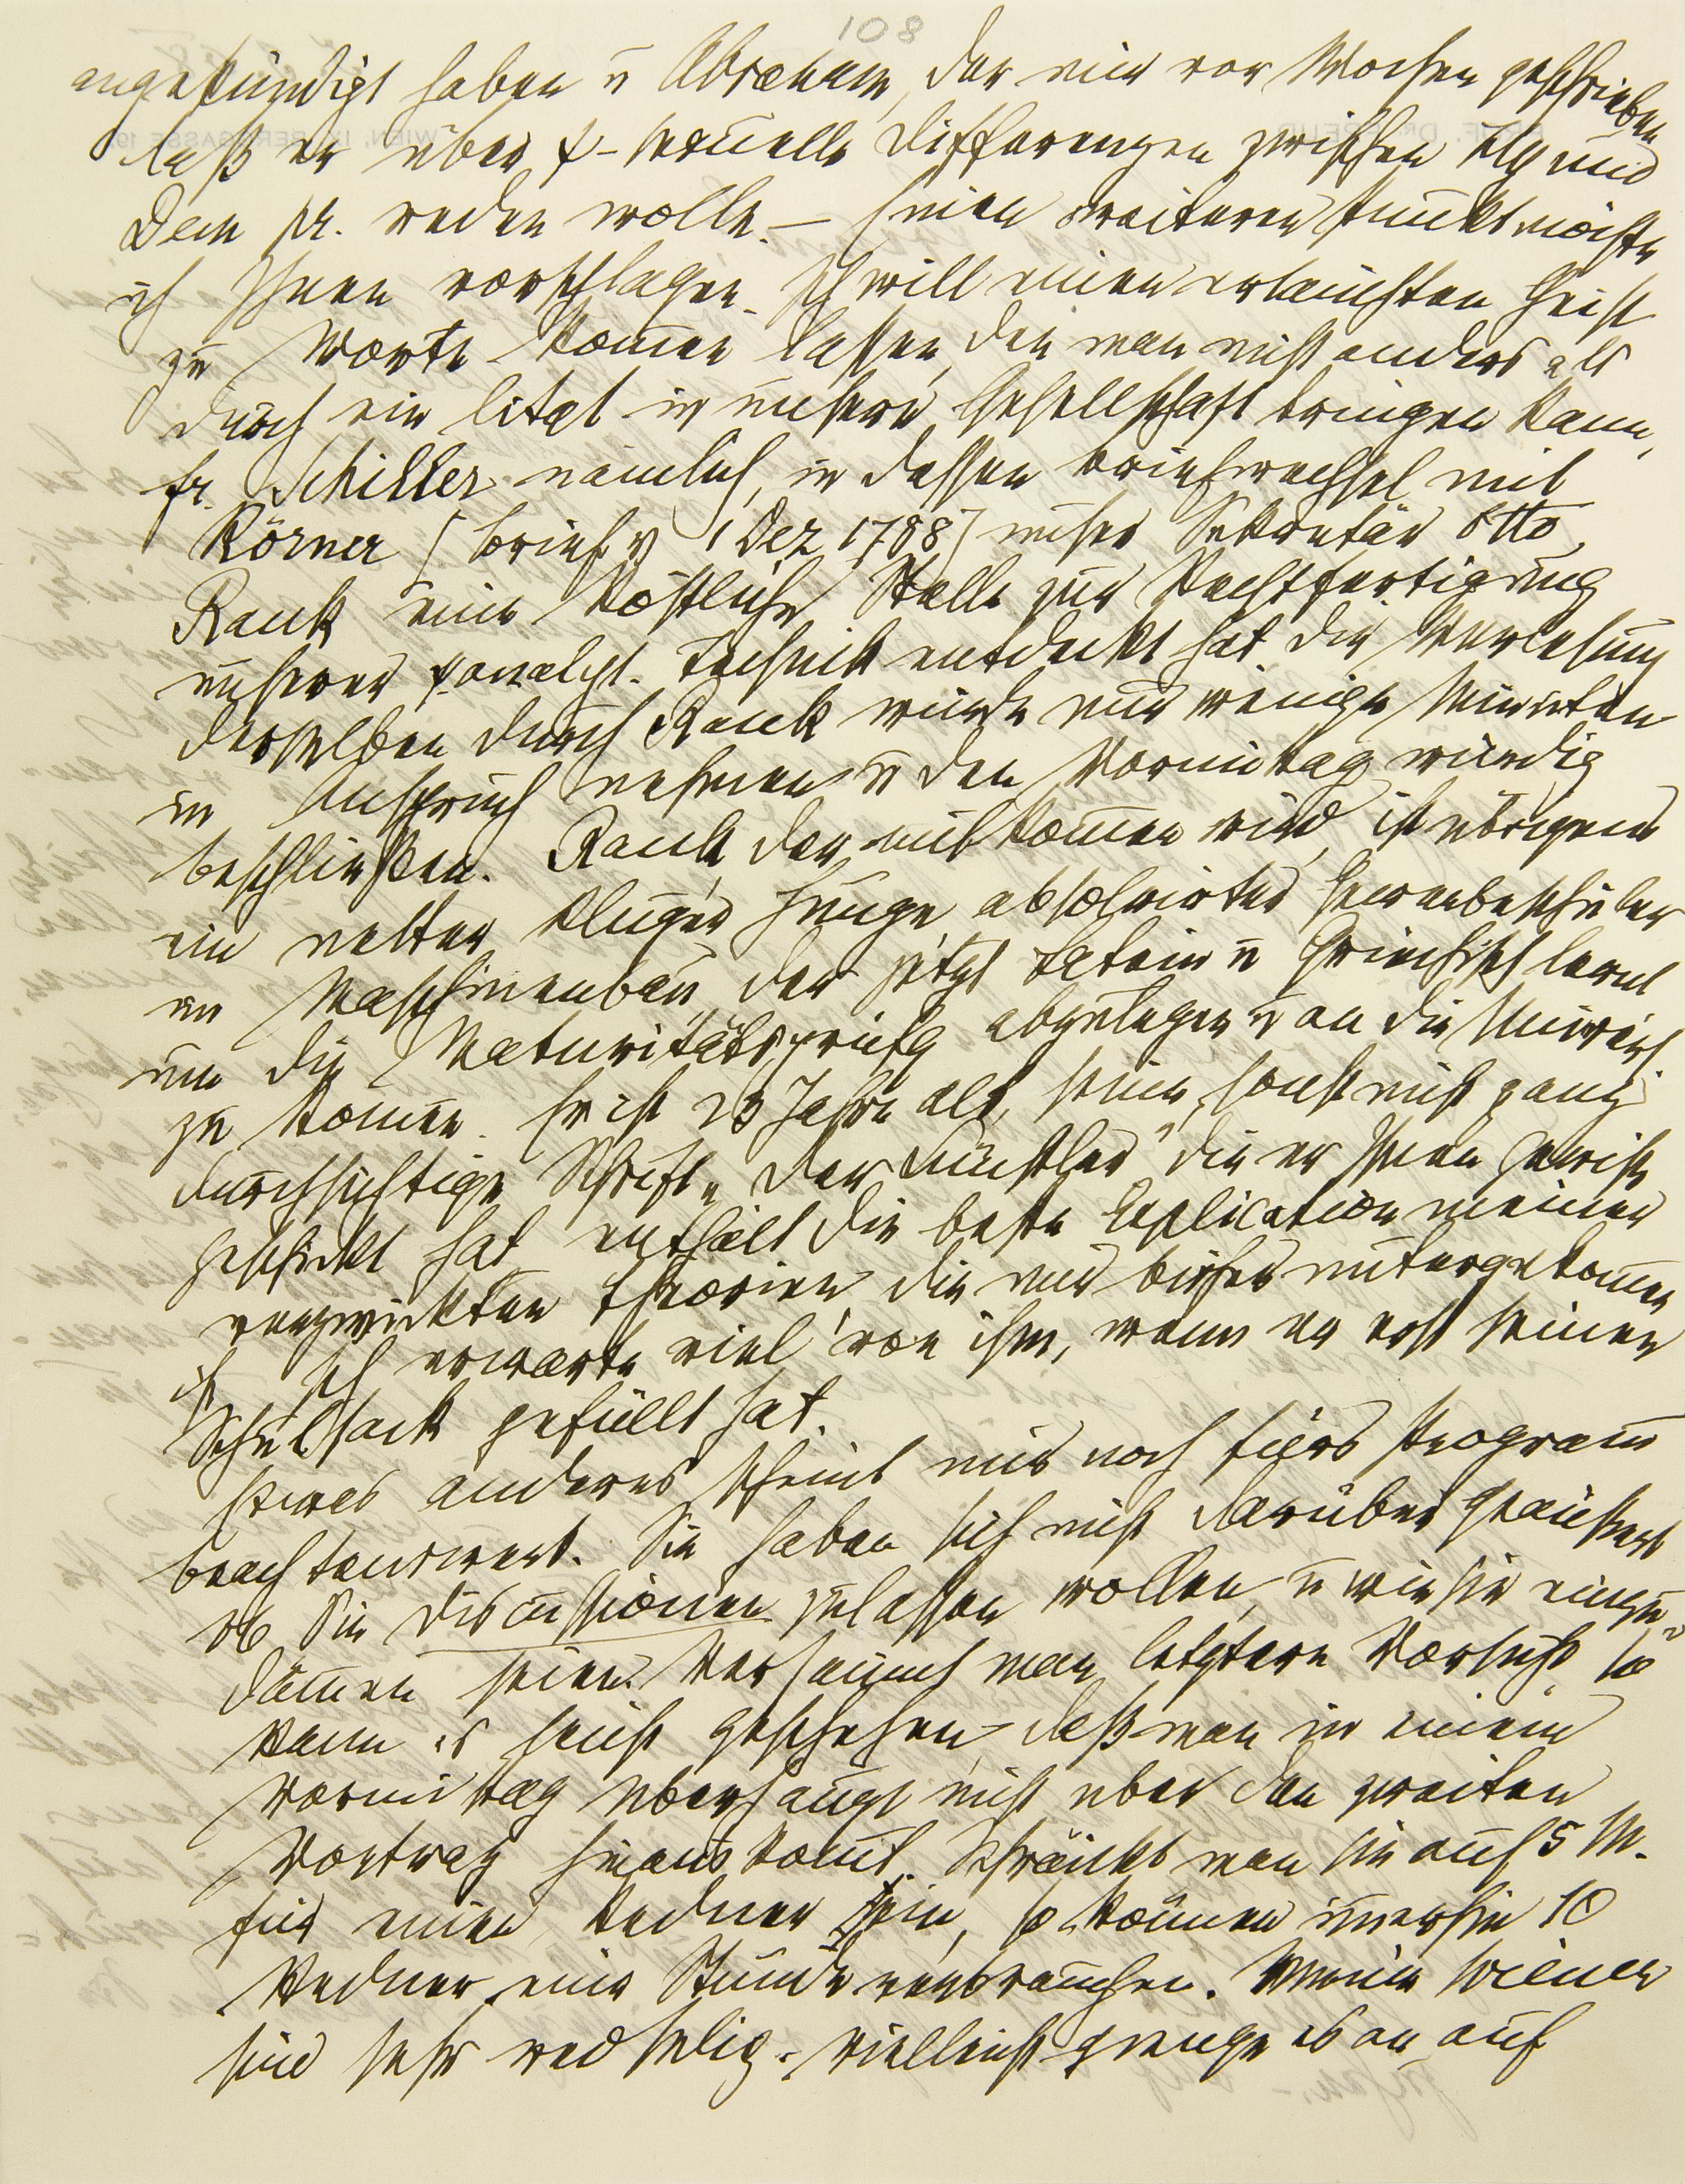 108
angekündigt haben u Abraham, der mir vor Wochen geschrieben
daß er über ψ-sexuelle Differenzen zwischen Hy und
Dem pr. reden wolle. – Einen weiteren Punkt möchte
ich Ihnen vorschlagen. Ich will einen erlauchten Geist
zu Worte kom̅en lassen, den man nicht anders als
durch ein Citat in unsere Gesellschaft bringen kann,
Fr. Schiller nämlich, in dessen Briefwechsel mit
Körner (Brief v 1 Dez 1788) unser Sekretär Otto
Rank eine köstliche Stelle zur Rechtfertigung
unserer ψanalyt. Technik entdeckt hat. Die Verlesung
derselben durch Rank würde nur wenige Minuten
in Anspruch nehmen u den Vormittag würdig
beschließen. Rank, der mitkom̅en wird, ist übrigens
ein netter kluger Junge, absolvirter Gewerbeschüler
im Maschinenbau, der jetzt Latein u Griechisch lernt
um die Maturitätsprüfg abzulegen u an die Univers
zu kom̅en. Er ist 23 Jahre alt, seine, sonst nicht ganz
durchsichtige Schrift „Der Künstler" die er Ihnen gewiß
geschickt hat, enthält die beste Explication meiner
verzwickten Theorien die mir bisher untergekom̅en
ist. Ich erwarte viel von ihm, wenn er erst seinen
Schulsack gefüllt hat.
Etwas anderes scheint mir noch fürs Program̅
beachtenswert. Sie haben sich nicht darüber geäußert
ob Sie Discussionen zulassen wollen, u wie sie einzu-
däm̅en seien. Versäumt man letztere Vorsicht, so
kann es leicht geschehen, daß man in einem
Vormittag überhaupt nicht über den zweiten
Vortrag hinauskom̅t. Schränkt man sie auf 5 M.
für einen Redner ein, so können im̅erhin 10
Redner eine Stunde verbrauchen. Meine Wiener
sind sehr redselig. Vielleicht gienge es an, auf